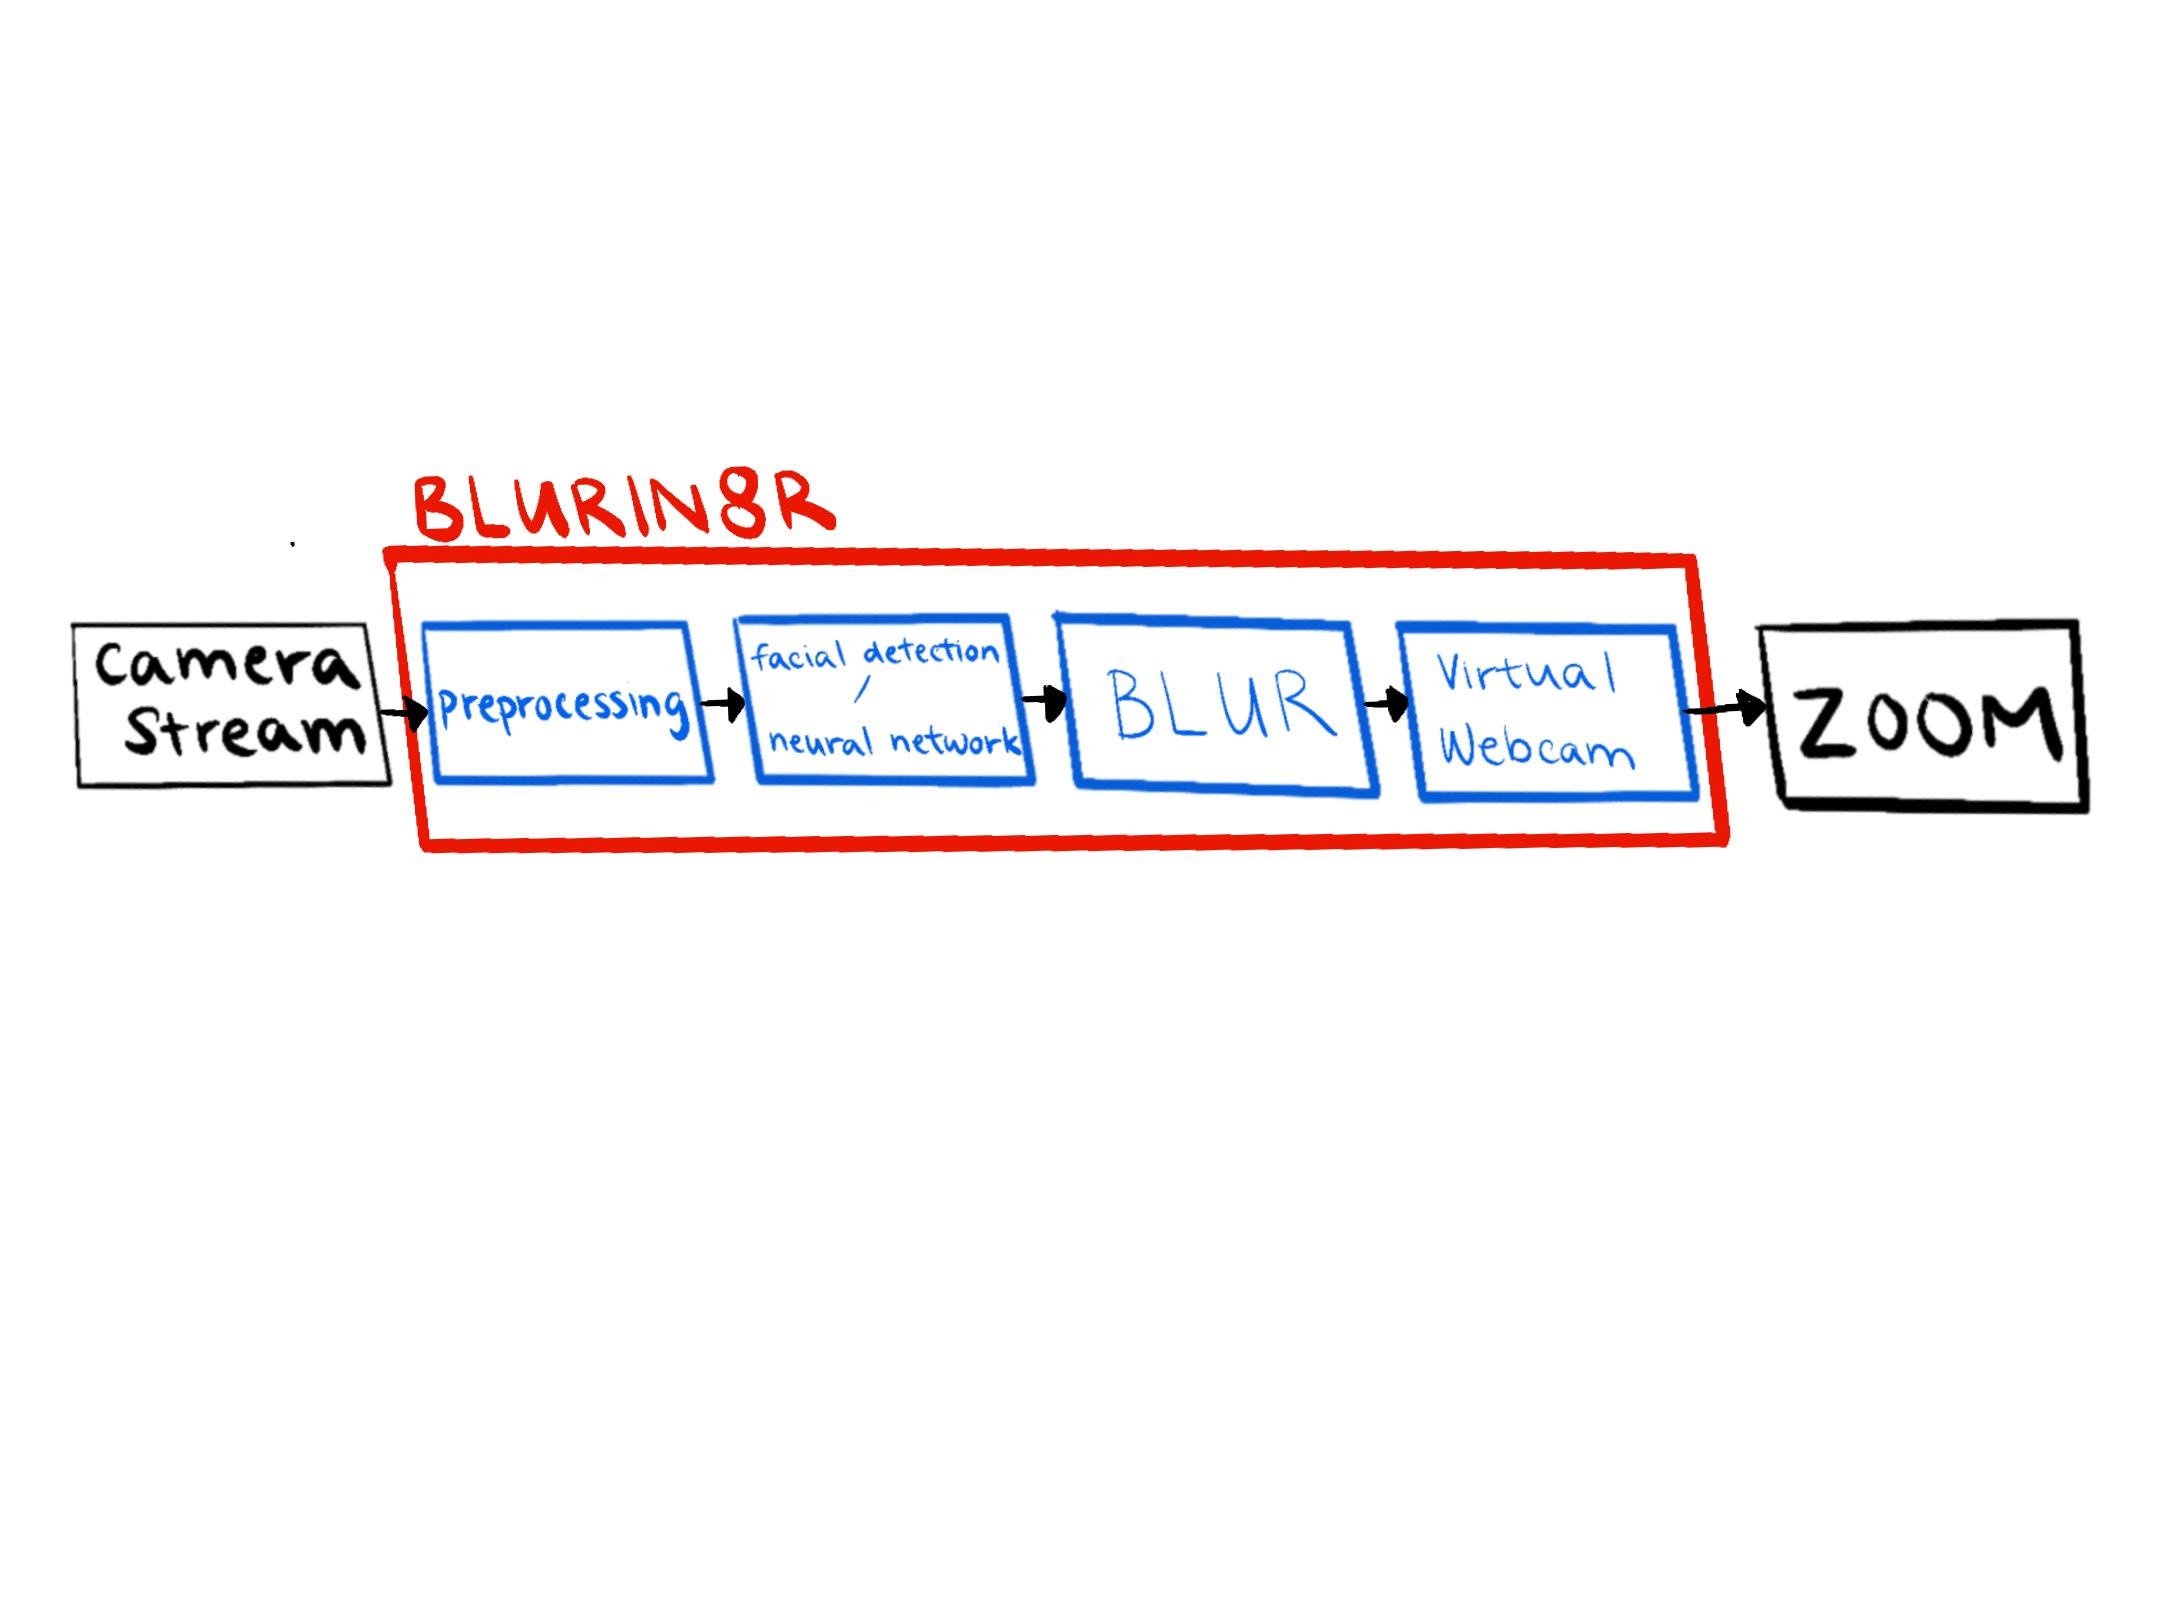 BLURIN8R
Camera
Stream
preprocessing
facial detection
/
neural network
BLUR
Virtual
Webcam
ZOOM